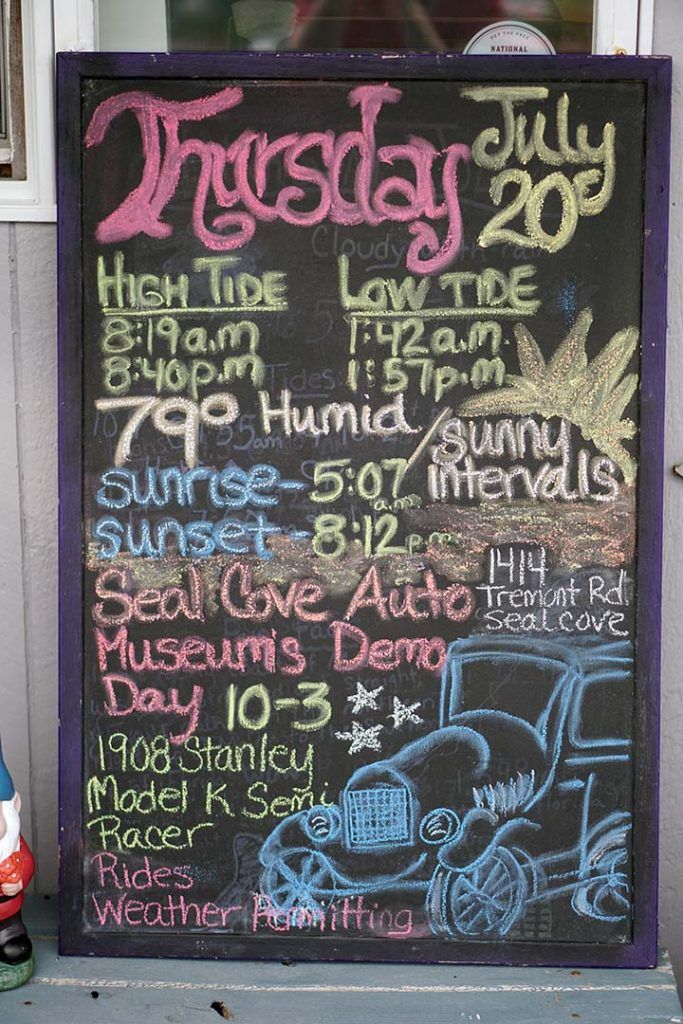 GET THE FREE
NATIONAL
Thursday
July
20
HIGH TIDE
8:19a.m
8:40p.m
LOW TIDE
1:42a.m.
1:57p.m
79° Humid / sunny
intervals
sunrise- 5:07 a.m
sunset - 8:12 p.m
Seal Cove Auto
Museum's Demo
Day 10-3
1414
Tremont Rd.
Seal cove
1908 Stanley
Model K Semi
Racer
Rides
Weather Permitting